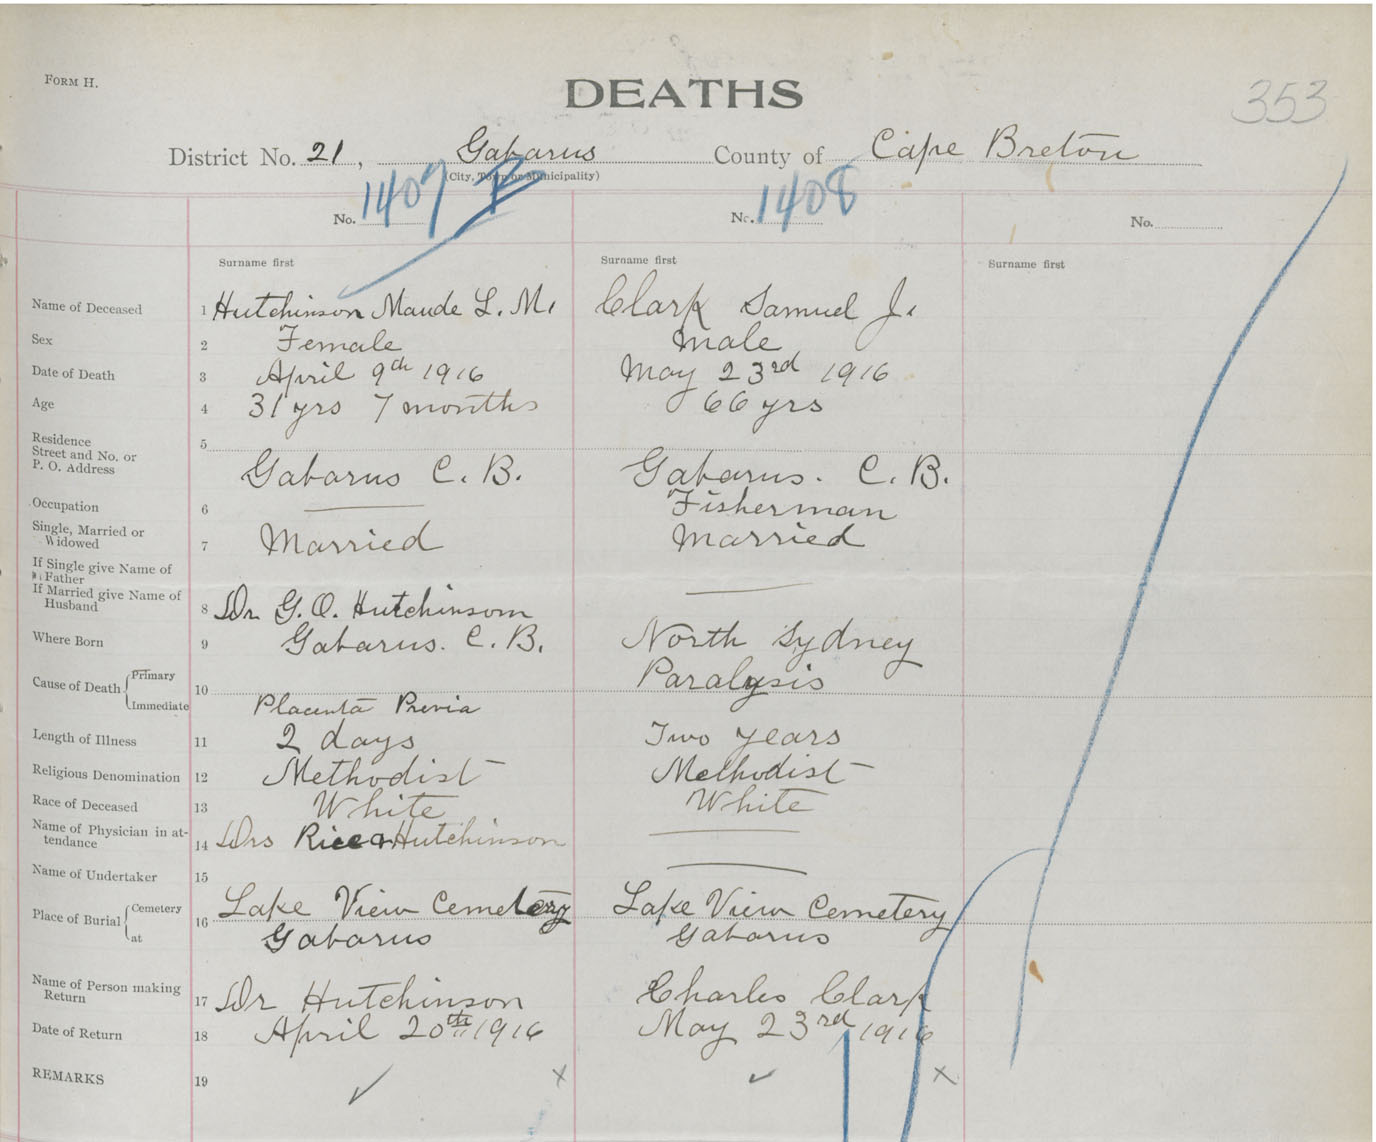 FORM H.
DEATHS
353
District No. 21, Gabarus County of Cape Breton
(City, Town or Municipality)
No. 1407 No. 1408 No.
Surname first Surname first Surname first
Name of Deceased 1 Hutchinson Maude L. M. Clark Samuel J.
Sex 2 Female Male
Date of Death 3 April 9th 1916 May 23rd 1916
Age 4 31 yrs 7 months 66 yrs
Residence
Street and No. or 5
P. O. Address Gabarus C. B. Gabarus. C. B.
Occupation 6 Fisherman
Single, Married or
Widowed 7 Married Married
If Single give Name of
Father
If Married give Name of
Husband 8 Dr G. O. Hutchinson
Where Born 9 Gabarus. C. B. North Sydney
Cause of Death Primary 10 Paralysis
Immediate Placenta Previa
Length of Illness 11 2 days Two years
Religious Denomination 12 Methodist Methodist
Race of Deceased 13 White White
Name of Physician in at-
tendance 14 Drs Rice & Hutchinson
Name of Undertaker 15
Place of Burial Cemetery 16 Lake View Cemetery Lake View Cemetery
at Gabarus Gabarus
Name of Person making
Return 17 Dr Hutchinson Charles Clark
Date of Return 18 April 20th 1916 May 23rd 1916
REMARKS 19